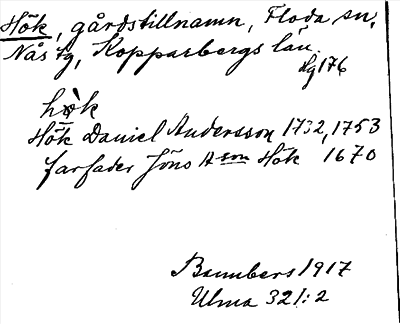 Hök, gårdstillnamn, Floda sn,
Nås tg, Kopparbergs län.
Hg 176
hök
Hök Daniel Andersson 1732, 1753
farfader Jöns A son Hök 1670
1917
Ulma 321:2